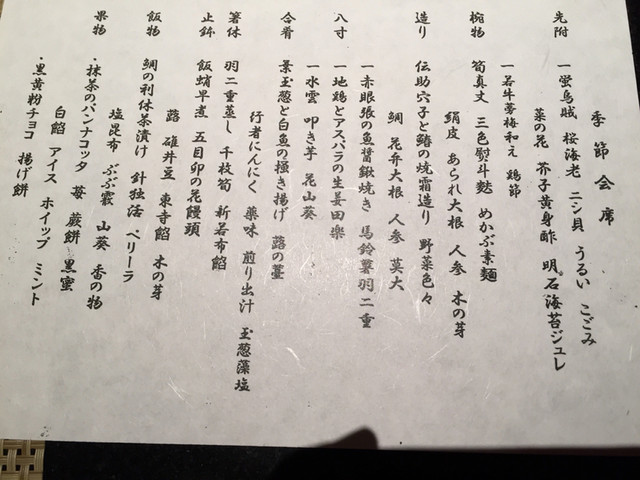 季節会席
先附 一 蛍烏賊 桜海老 ニシ貝 うるい こごみ
菜の花 芥子黄身酢 明石海苔ジュレ
一 若牛蒡梅和え 鶏節
椀物 筍真丈 三色熨斗麩 めかぶ素麺
絹皮 あられ大根 人参 木の芽
造り 伝助穴子と鰆の焼霜造り 野菜色々
鯛 花弁大根 人参 莫大
八寸 一 赤眼張の魚醤鍬焼き 馬鈴薯羽二重
一 地鶏とアスパラの生姜田楽
一 水雲 叩き芋 花山葵
合肴 葉玉葱と白魚の掻き揚げ 蕗の薹
行者にんにく 薬味 煎り出汁 玉葱藻塩
箸休 羽二重蒸し 千枝筍 新若布餡
止鉢 飯蛸早煮 五目卯の花饅頭
蕗 碓井豆 東寺餡 木の芽
飯物 鯛の利休茶漬け 針独活 ベリーラ
塩昆布 ぶぶ霰 山葵 香の物
果物 ・抹茶のパンナコッタ 苺 蕨餅 黒蜜
白餡 アイス ホイップ ミント
・黒黄粉チョコ 揚げ餅